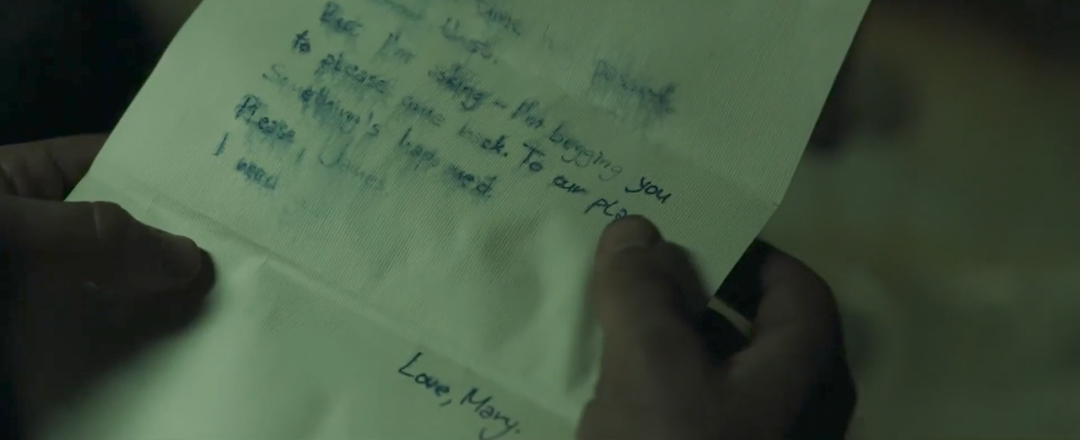 But I'm asking – I'm begging you
to please come back. To our pla
Something's happened.
Please, James
I need
Love, Mary.